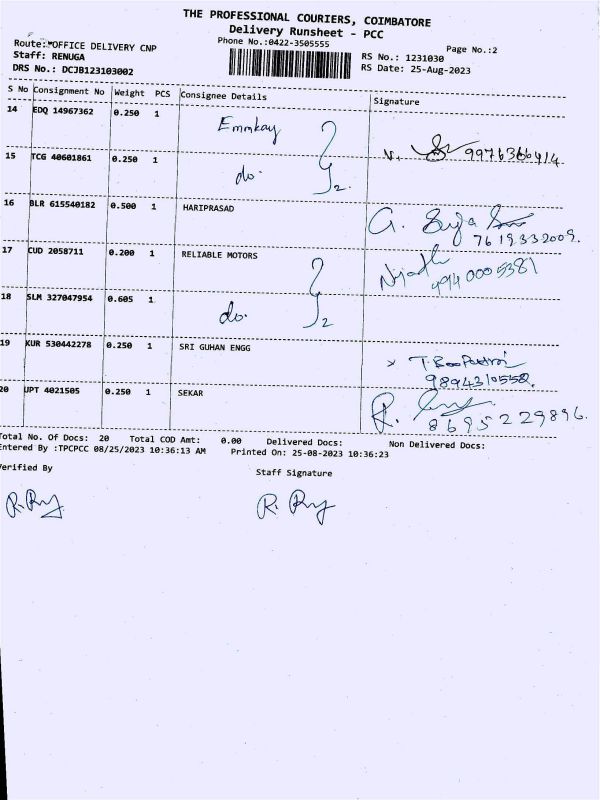 THE PROFESSIONAL COURIERS, COIMBATORE
Delivery Runsheet - PCC
Phone No.:0422-3505555
Page No.:2
Route: OFFICE DELIVERY CNP
Staff: RENUGA
DRS No.: DCJB123103002
RS No.: 1231030
RS Date: 25-Aug-2023
S No Consignment No Weight PCS Consignee Details Signature
14 EDQ 14967362 0.250 1 Emmkay
15 TCG 40601861 0.250 1 do. 2.
16 BLR 615540182 0.500 1 HARIPRASAD G.
7619332009.
17 CUD 2058711 0.200 1 RELIABLE MOTORS
9940005381
18 SLM 327047954 0.605 1 do. 2
19 KUR 530442278 0.250 1 SRI GUHAN ENGG
9894310552.
20 JPT 4021505 0.250 1 SEKAR R.
8695229896.
Total No. Of Docs: 20 Total COD Amt: 0.00 Delivered Docs: Non Delivered Docs:
Entered By :TPCPCC 08/25/2023 10:36:13 AM Printed On: 25-08-2023 10:36:23
Verified By Staff Signature